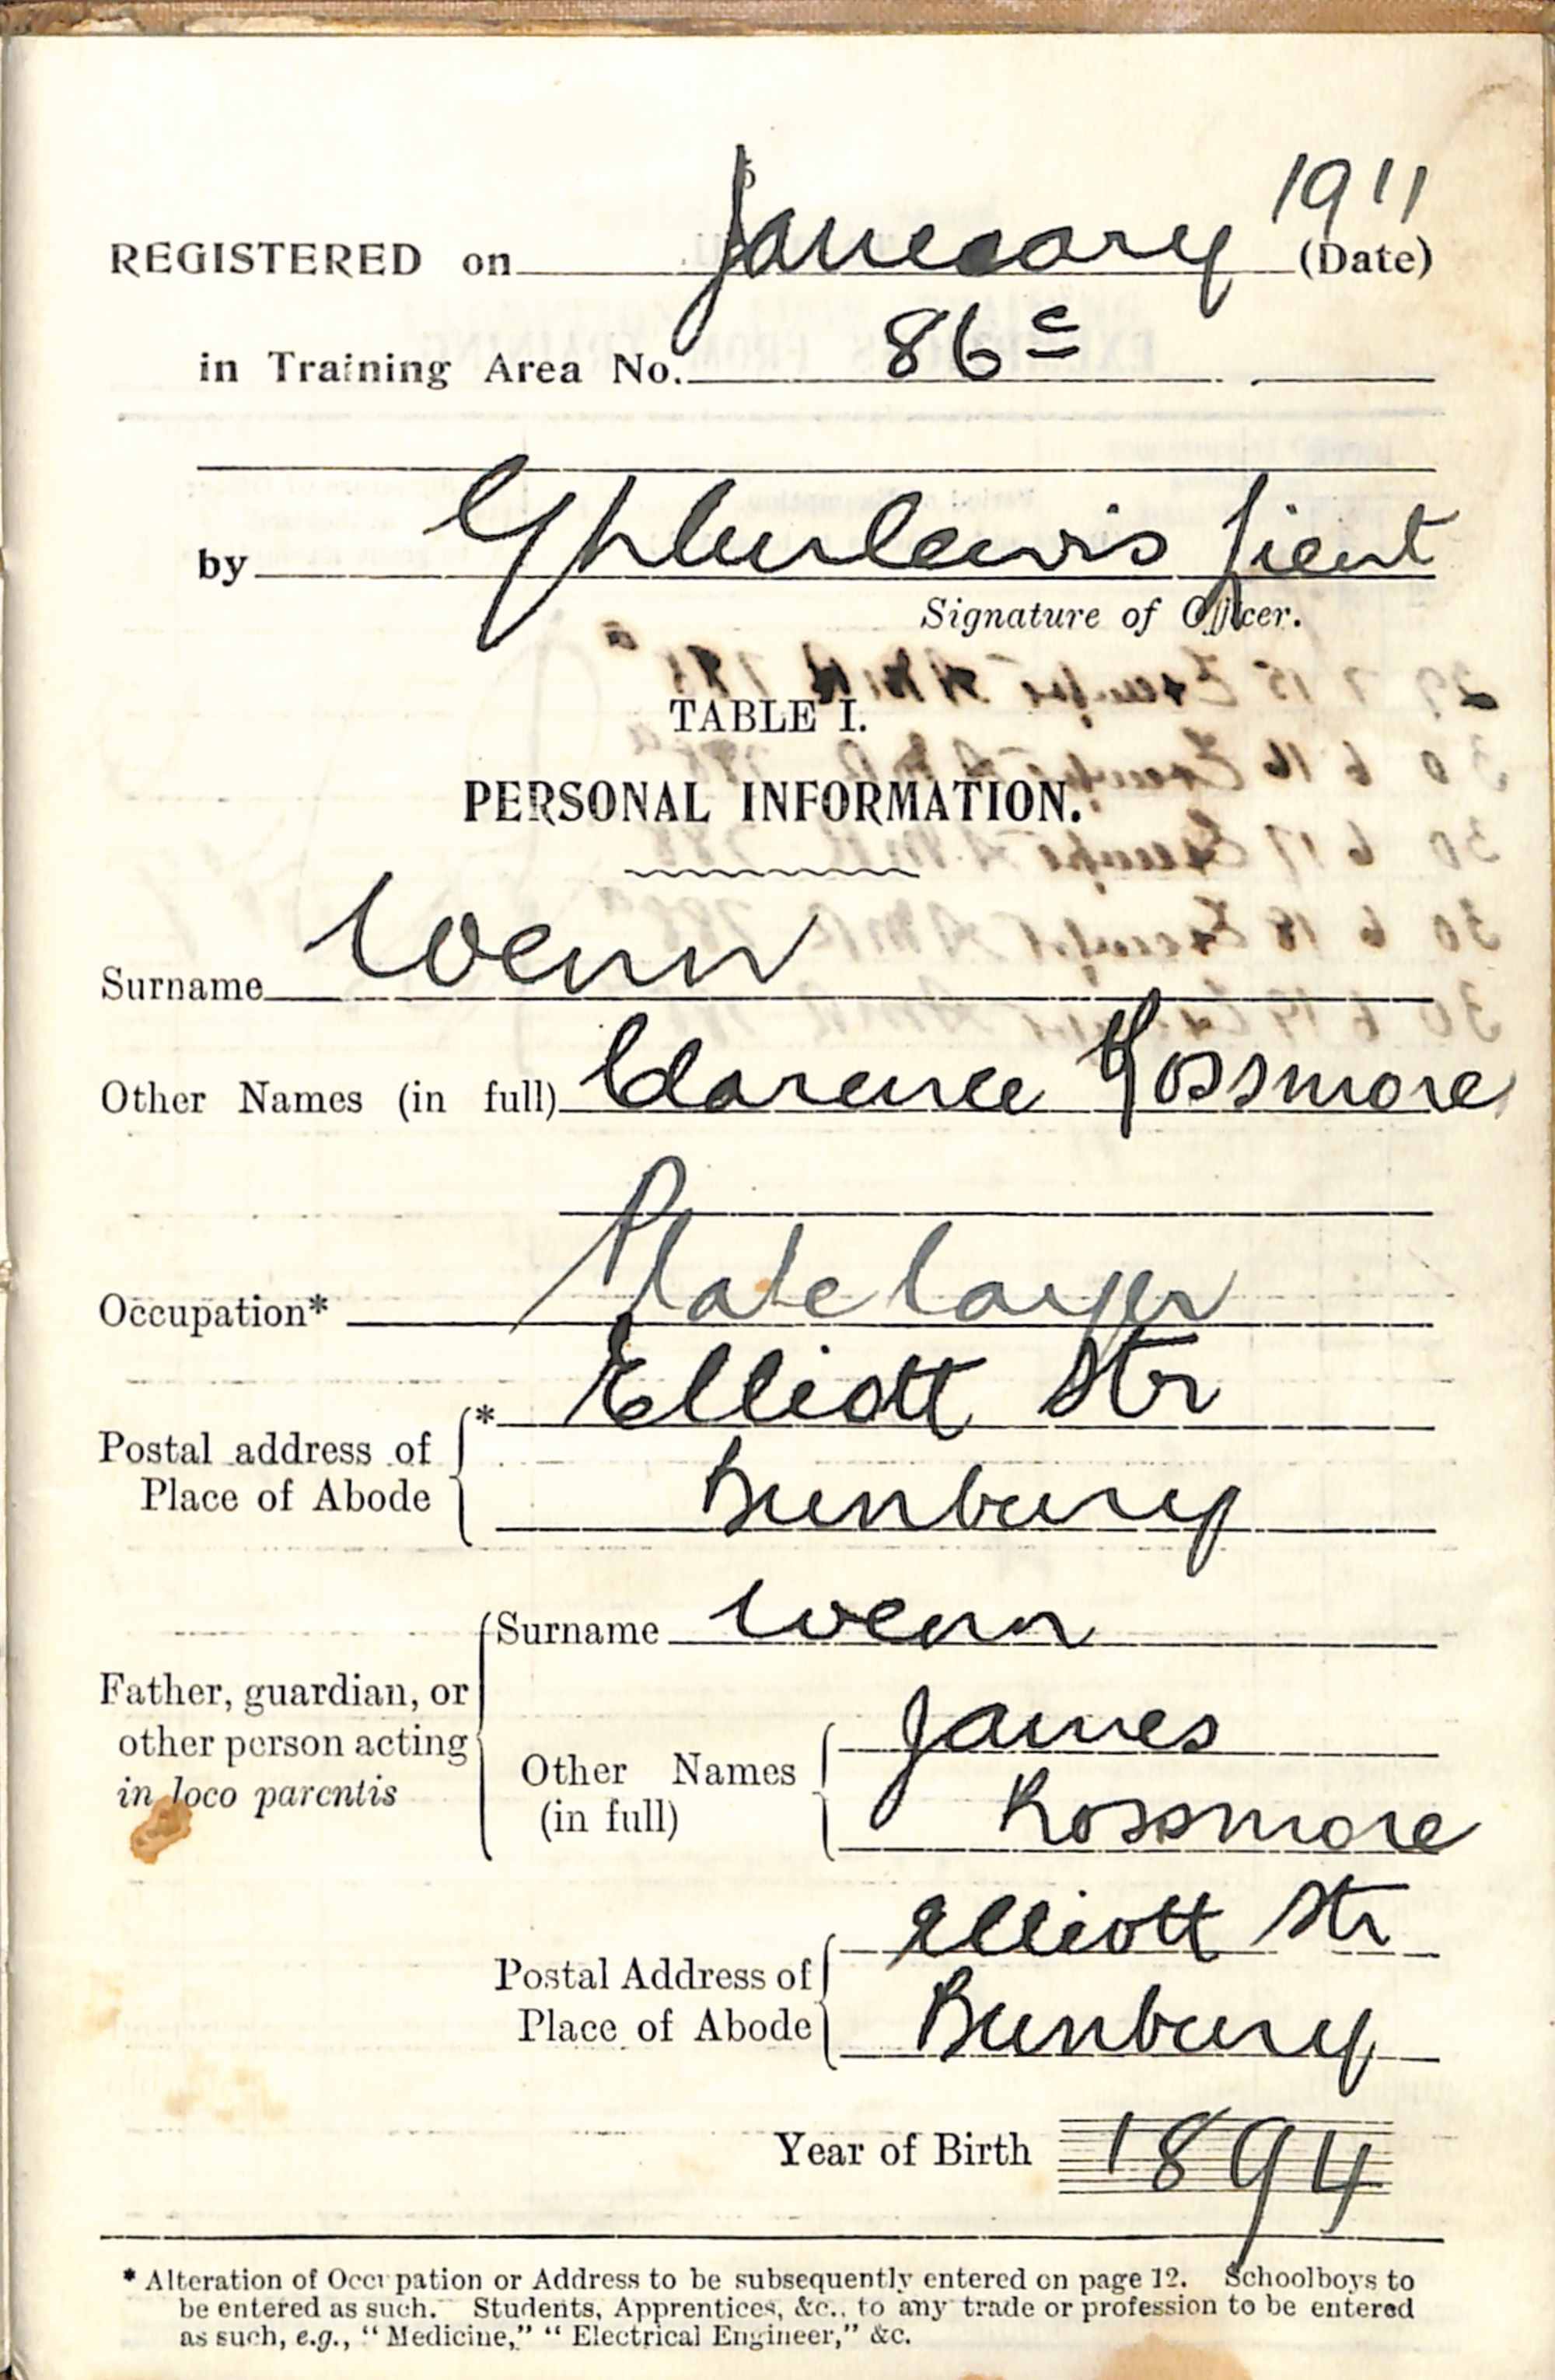 5
1911
REGISTERED on January (Date)
in Training Area No. 86c
by Lieut
Signature of Officer.
TABLE I.
PERSONAL INFORMATION.
Surname Wenn
Other Names (in full) Clarence Rossmore
Occupation* Plate layer
Postal address of Place of Abode * Elliott Str
Bunbury
Father, guardian, or other person acting in loco parentis
Surname Wenn
Other Names (in full) James
Rossmore
Postal Address of Place of Abode Elliott Str
Bunbury
Year of Birth 1894
* Alteration of Occupation or Address to be subsequently entered on page 12. Schoolboys to
be entered as such. Students, Apprentices, &c., to any trade or profession to be entered
as such, e.g., "Medicine," "Electrical Engineer," &c.